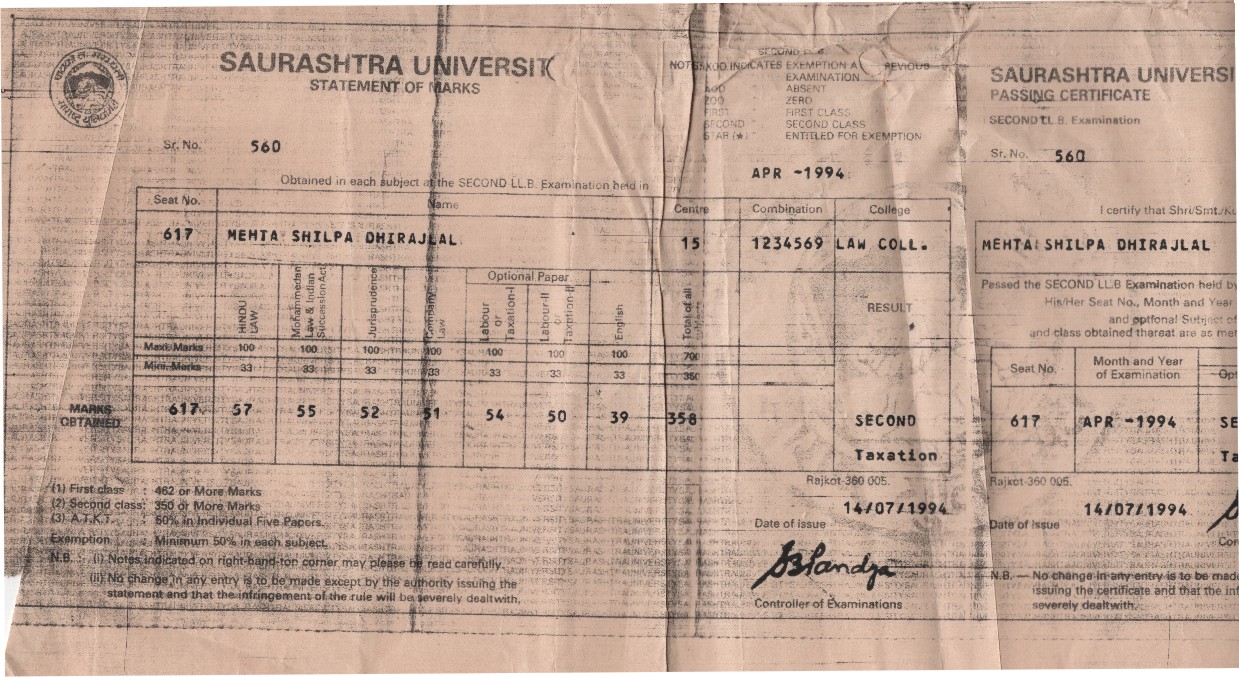 SAURASHTRA UNIVERSIT
STATEMENT OF MARKS
Sr. No. 560
Obtained in each subject at the SECOND LL.B. Examination held in
APR -1994
SECOND
NOTE: XOO INDICATES EXEMPTION A PREVIOUS
EXAMINATION
ABSENT
ZOO ZERO
FIRST FIRST CLASS
SECOND SECOND CLASS
STAR (★) ENTITLED FOR EXEMPTION
Seat No. Name Centre Combination College
617 MEHTA SHILPA DHIRAJLAL 15 1234569 LAW COLL.
Optional Paper
HINDU LAW
Mohammedan Law & Indian Succession Act
Jurisprudence
Company Law
Labour or Taxation-I
Labour-II or Taxption-II
English
Total of all
RESULT
Maxi. Marks 100 100 100 100 100 100 100 700
Mini. Marks 33 33 33 33 33 33 33 350
MARKS OBTAINED 617 57 55 52 51 54 50 39 358 SECOND
Taxation
(1) First class : 462 or More Marks
(2) Second class: 350 or More Marks
(3) A.T.K.T. : 50% in Individual Five Papers.
Exemption : Minimum 50% in each subject.
N.B. : (i) Notes indicated on right-band-ton corner may please be read carefully.
(ii) No change in any entry is to be made except by the authority issuing the
statement and that the infringement of the rule will be severely dealtwith.
Rajkot-360 005.
14/07/1994
Date of issue
Controller of Examinations
SAURASHTRA UNIVERSI
PASSING CERTIFICATE
SECOND LL.B. Examination
Sr. No. 560
I certify that Shri/Smt./Ku
MEHTA SHILPA DHIRAJLAL
Passed the SECOND LL.B Examination held by
His/Her Seat No., Month and Year
and optfonal Subject of
and class obtained thereat are as mer
Seat No. Month and Year of Examination Opt
617 APR -1994 SE
Ta
Rajkot-360 005.
14/07/1994
Date of Issue
Con
N.B. — No change in any entry is to be made
issuing the certificate and that the inf
severely dealtwith.